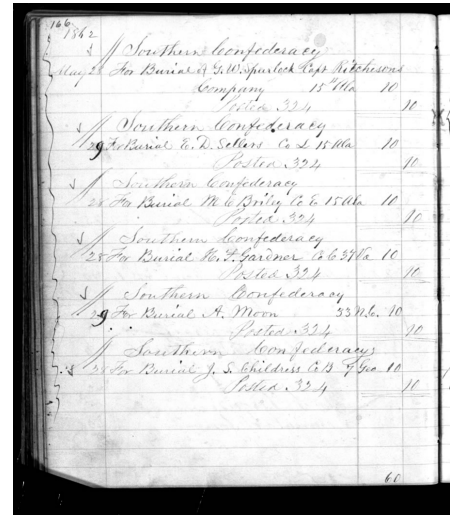 166
1862
Southern Confederacy
May 28 For Burial of G. W. Spurlock Capt Ritchisons
Company 15th Ala 10
Posted 324 10
Southern Confederacy
29 For Burial E. D. Sellers Co L 15 Ala 10
Posted 324 10
Southern Confederacy
28 For Burial M. E. Briley Co E 15 Ala 10
Posted 324 10
Southern Confederacy
28 For Burial H. F. Gardner Co C 37 Va 10
Posted 324 10
Southern Confederacy
29 For Burial A. Moon 33 N.C. 10
Posted 324 10
Southern Confederacy
28 For Burial J. S. Childress Co B 7 Geo 10
Posted 324 10
60